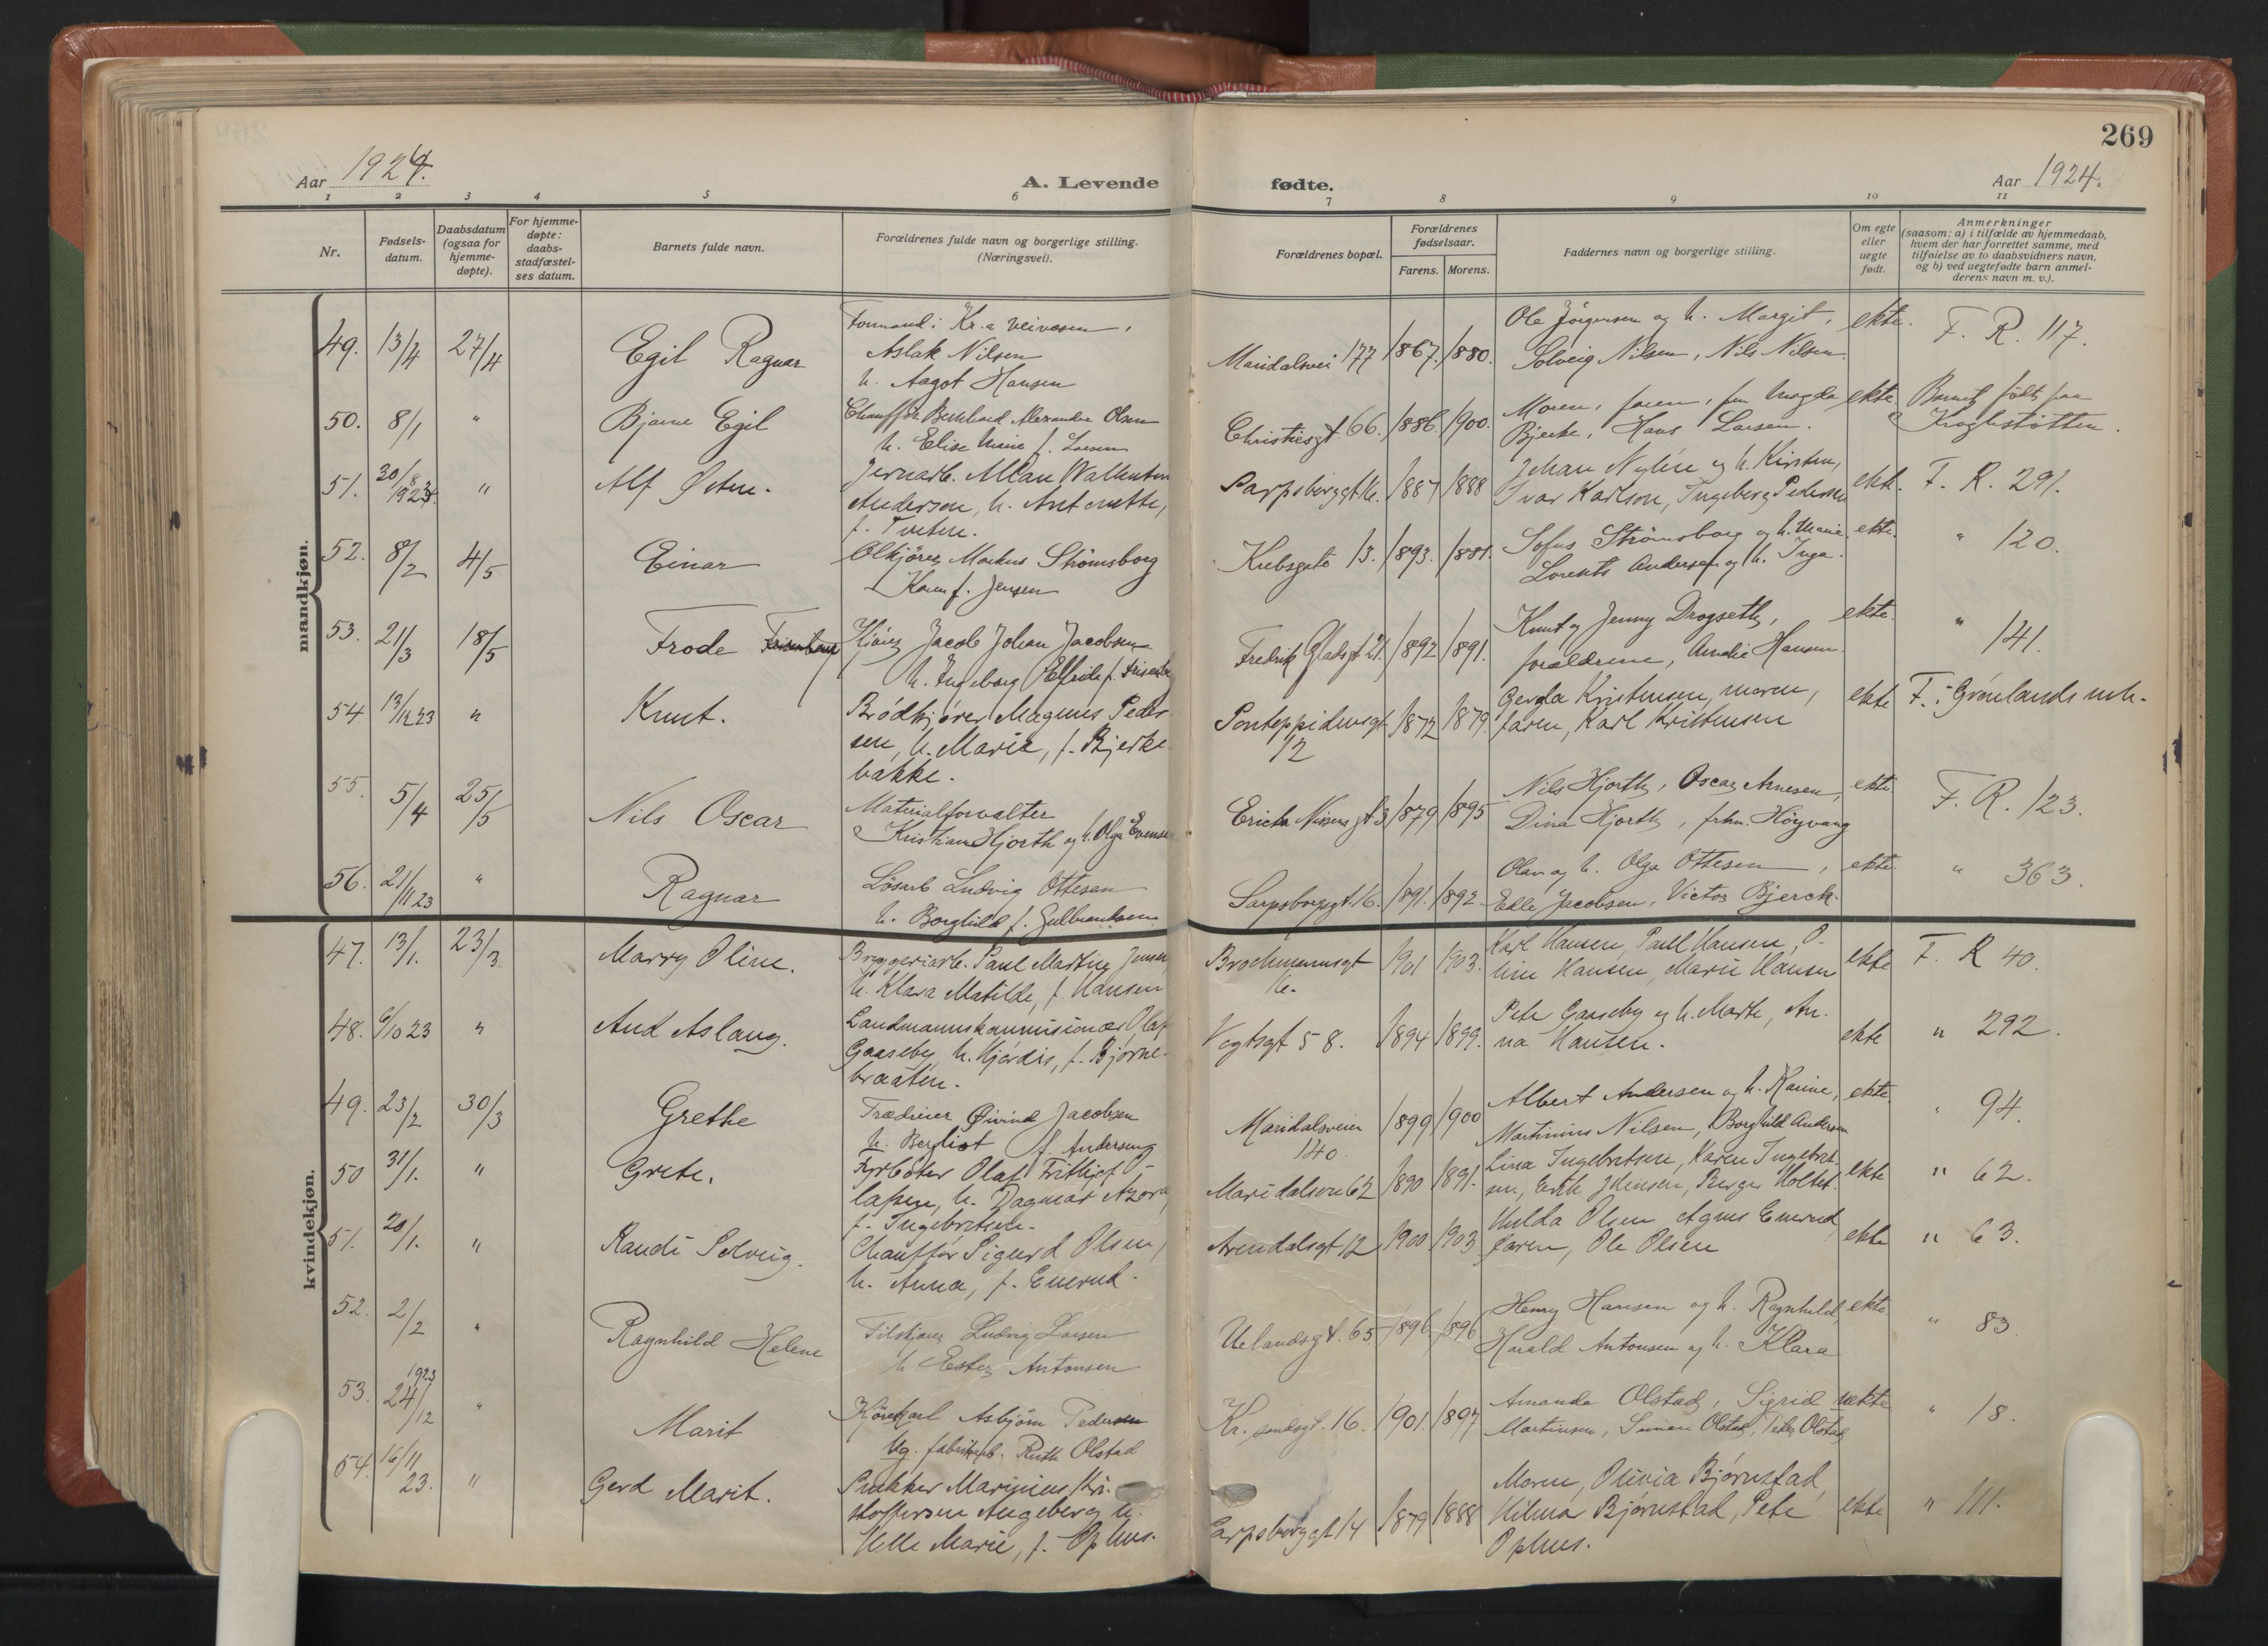 269
Aar 1924.
A. Levende
fødte.
Aar 1924.
1 2 3 4 5 6 7 8 9 10 11
Nr.
Fødsels-
datum.
Daabsdatum
(ogsaa for
hjemme-
døpte).
For hjemme-
døpte:
daabs-
stadfæstel-
ses datum.
Barnets fulde navn.
Forældrenes fulde navn og borgerlige stilling.
(Næringsvei).
Forældrenes bopæl.
Forældrenes
fødselsaar.
Farens. Morens.
Faddernes navn og borgerlige stilling.
Om egte
eller
uegte
født.
Anmerkninger
(saasom: a) i tilfælde av hjemmedaab,
hvem der har forrettet samme, med
tilføielse av to daabsvidners navn,
og b) ved uegtefødte barn anmel-
derens navn m. v.).
mandkjøn.
49. 13/4 27/4 Egil Ragnar
Formand i Kr.a veivæsen,
Aslak Nilsen
h. Aagot Hansen
Maridalsvei 177 1867. 1880.
Ole Jörgensen og h. Margit,
Solveig Nilsen, Nils Nilsen.
ekte. F. R. 117.
50. 8/1 " Bjarne Egil
Chauffør Bernhard Alexander Olsen
h. Elise Marie f. Larsen
Christiesgt. 66. 1886. 1900.
Moren, faren, frn Magda
Bjerke, Hans Larsen.
ekte. Barnet født paa
Krogstøtten.
51. 30/8 1923. " Alf Østen.
Jernarb. Allan Wallentin
Anderson, h. Antonette,
f. Tveten.
Sarpsborggt. 16. 1887 1888
Johan Nylén og h. Kirsten,
Ivar Karlson, Ingeborg Pedersen
ekte. F. R. 291.
52. 8/2 4/5 Einar
Ølkjörer Markus Strömsborg
h Karen f. Jensen
Krebsgate 13. 1893. 1881.
Sofus Strömsborg og h. Marie
Lorents Andersen og h. Inga.
ekte. " 120.
53. 21/3 18/5 Frode
Kjörer Jacob Johan Jacobsen
h. Ingeborg Elfride f.
Fredrik Gladsgt 21. 1892 1891.
Knut og Jenny Drogseth,
forældrene, Amalie Hansen.
ekte. " 141.
54 13/12 23 " Knut.
Brødkjører Magnus Peder-
sen, h. Marie, f. Bjerke-
bakke.
Pontoppidansgt 1872 1879.
12
Gerda Kristensen, moren,
faren, Karl Kristensen
ekte F. i Grønlands msk.
55. 5/4 25/5 Nils Oscar
Materialforvalter
Kristian Hjorth og h. Olga Evensen
Erich Nissens gt 3 1879 1895
Nils Hjorth, Oscar Arnesen,
Dina Hjorth, frkn. Höyvang
ekte. F. R. 123.
56. 21/11 23 " Ragnar
Lösarb Ludvig Ottesen
h. Borghild f. Gulbrandsen
Sarpsborggt. 16. 1891. 1892
Olav og h. Olga Ottesen,
Edle Jacobsen, Victor Bjerck.
ekte " 363.
kvindekjøn.
47. 13/1. 23/3 Marry Oline.
Bryggeriarb. Paul Martin Jensen,
h. Klara Matilde, f. Hansen
Brochmannsgt 1901 1903.
16.
Karl Hansen, Paul Hansen, O-
line Hansen, Marie Hansen
ekte F. R 40.
48. 6/10 23 " Aud Aslaug.
Landmannskommisionær Olaf
Gaaseby, h. Hjørdis, f. Bjørne-
braaten.
Vogtsgt 58. 1894 1899.
Peter Gaaseby og h. Marte, An-
na Hansen.
ekte " 292.
49. 23/2 30/3 Grethe
Trædreier Øivind Jacobsen
h. Bergliot f. Andersen
Maridalsveien 1899 1900
140.
Albert Andersen og h. Karine,
Martinius Nilsen, Borghild Andersen
ekte. " 94.
50 31/1. " Grete.
Fyrbøter Olaf Frithjof O-
lafsen, h. Dagmar Azora,
f. Ingebretsen.
Maridalsvn 62 1890 1891.
Lina Ingebretsen, Karen Ingebret-
sen, Erik Johnsen, Birger Holtet.
ekte " 62.
51. 20/1. " Randi Solveig.
Chauffør Sigurd Olsen,
h. Anna, f. Enerud.
Arendalsgt 12 1900 1903
Hulda Olsen, Agnes Enerud,
faren, Ole Olsen
ekte " 63.
52. 2/2 " Ragnhild Helene
Filskjærer Ludvig Larsen
h. Ester Antonsen
Uelandsgt. 65 1896. 1896
Henry Hansen og h. Ragnhild,
Harald Antonsen og h. Klara
ekte " 83.
53. 1923 24/12 " Marit
Kjörekarl Asbjørn Pedersen
Ug. fabrikarb. Ruth Olstad
Kr.sandsgt. 16. 1901. 1897
Amanda Olstad, Sigrid
Martinsen, Simen Olstad, Peter Olstad
uekte " 18.
54. 16/11 23. " Gerd Marit.
Snekker Marinius Kri-
stoffersen Angeberg, h.
Helle Marie, f. Ophus.
Sarpsborggt 14 1879 1888
Moren, Olivia Bjørnstad,
Hilma Bjørnstad, Peter
Ophus.
ekte " 111.